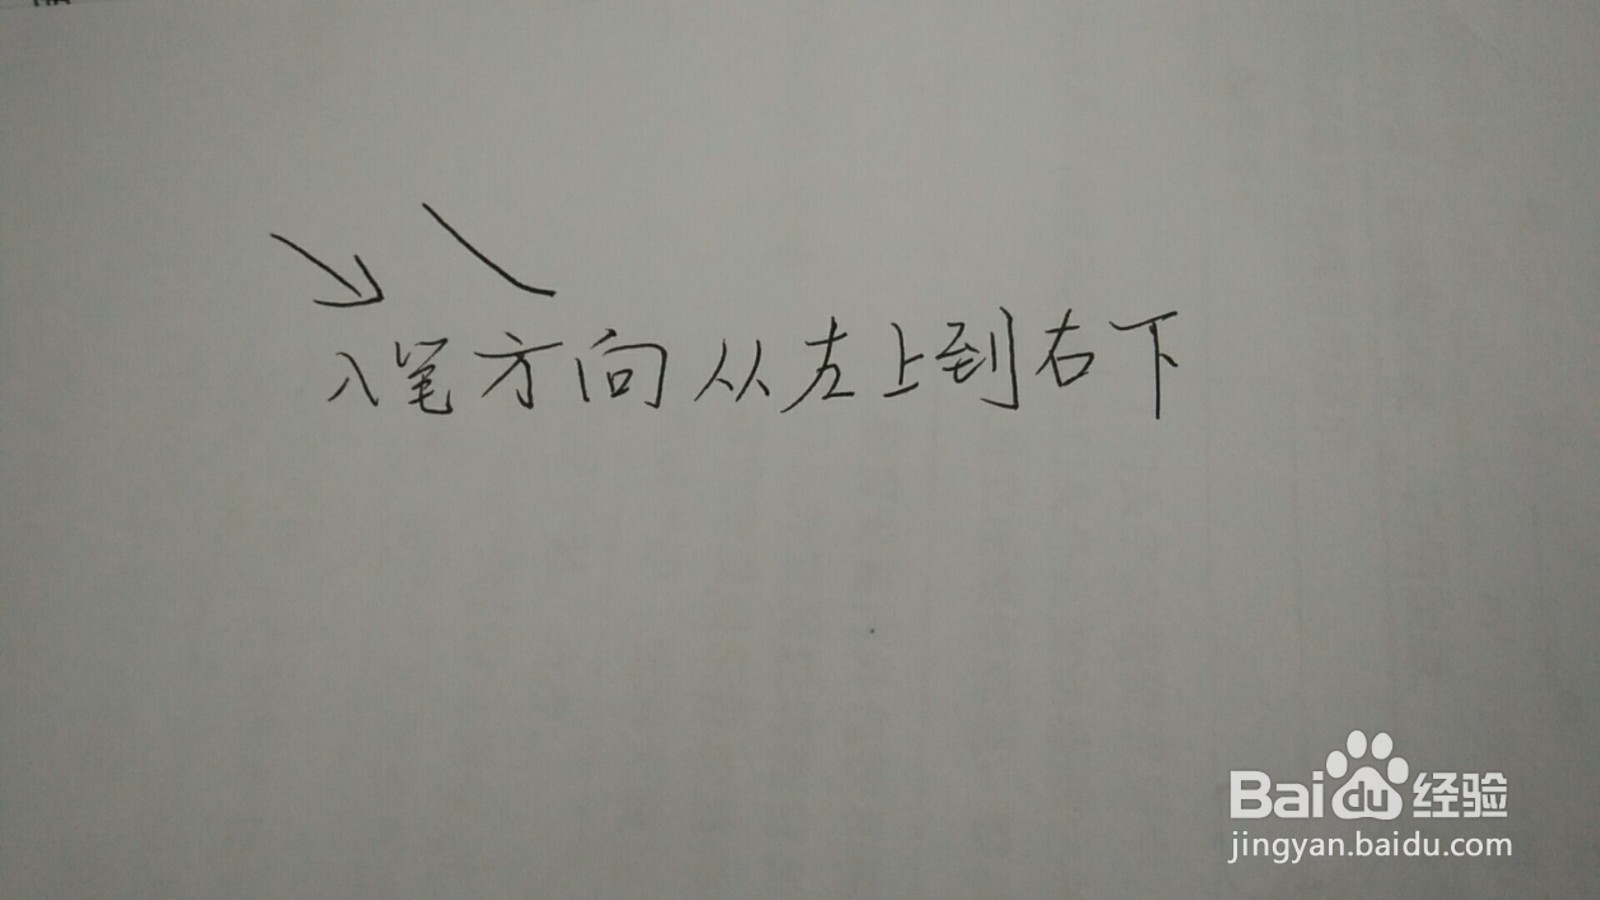 入笔方向从左上到右下
Baidu经验
jingyan.baidu.com